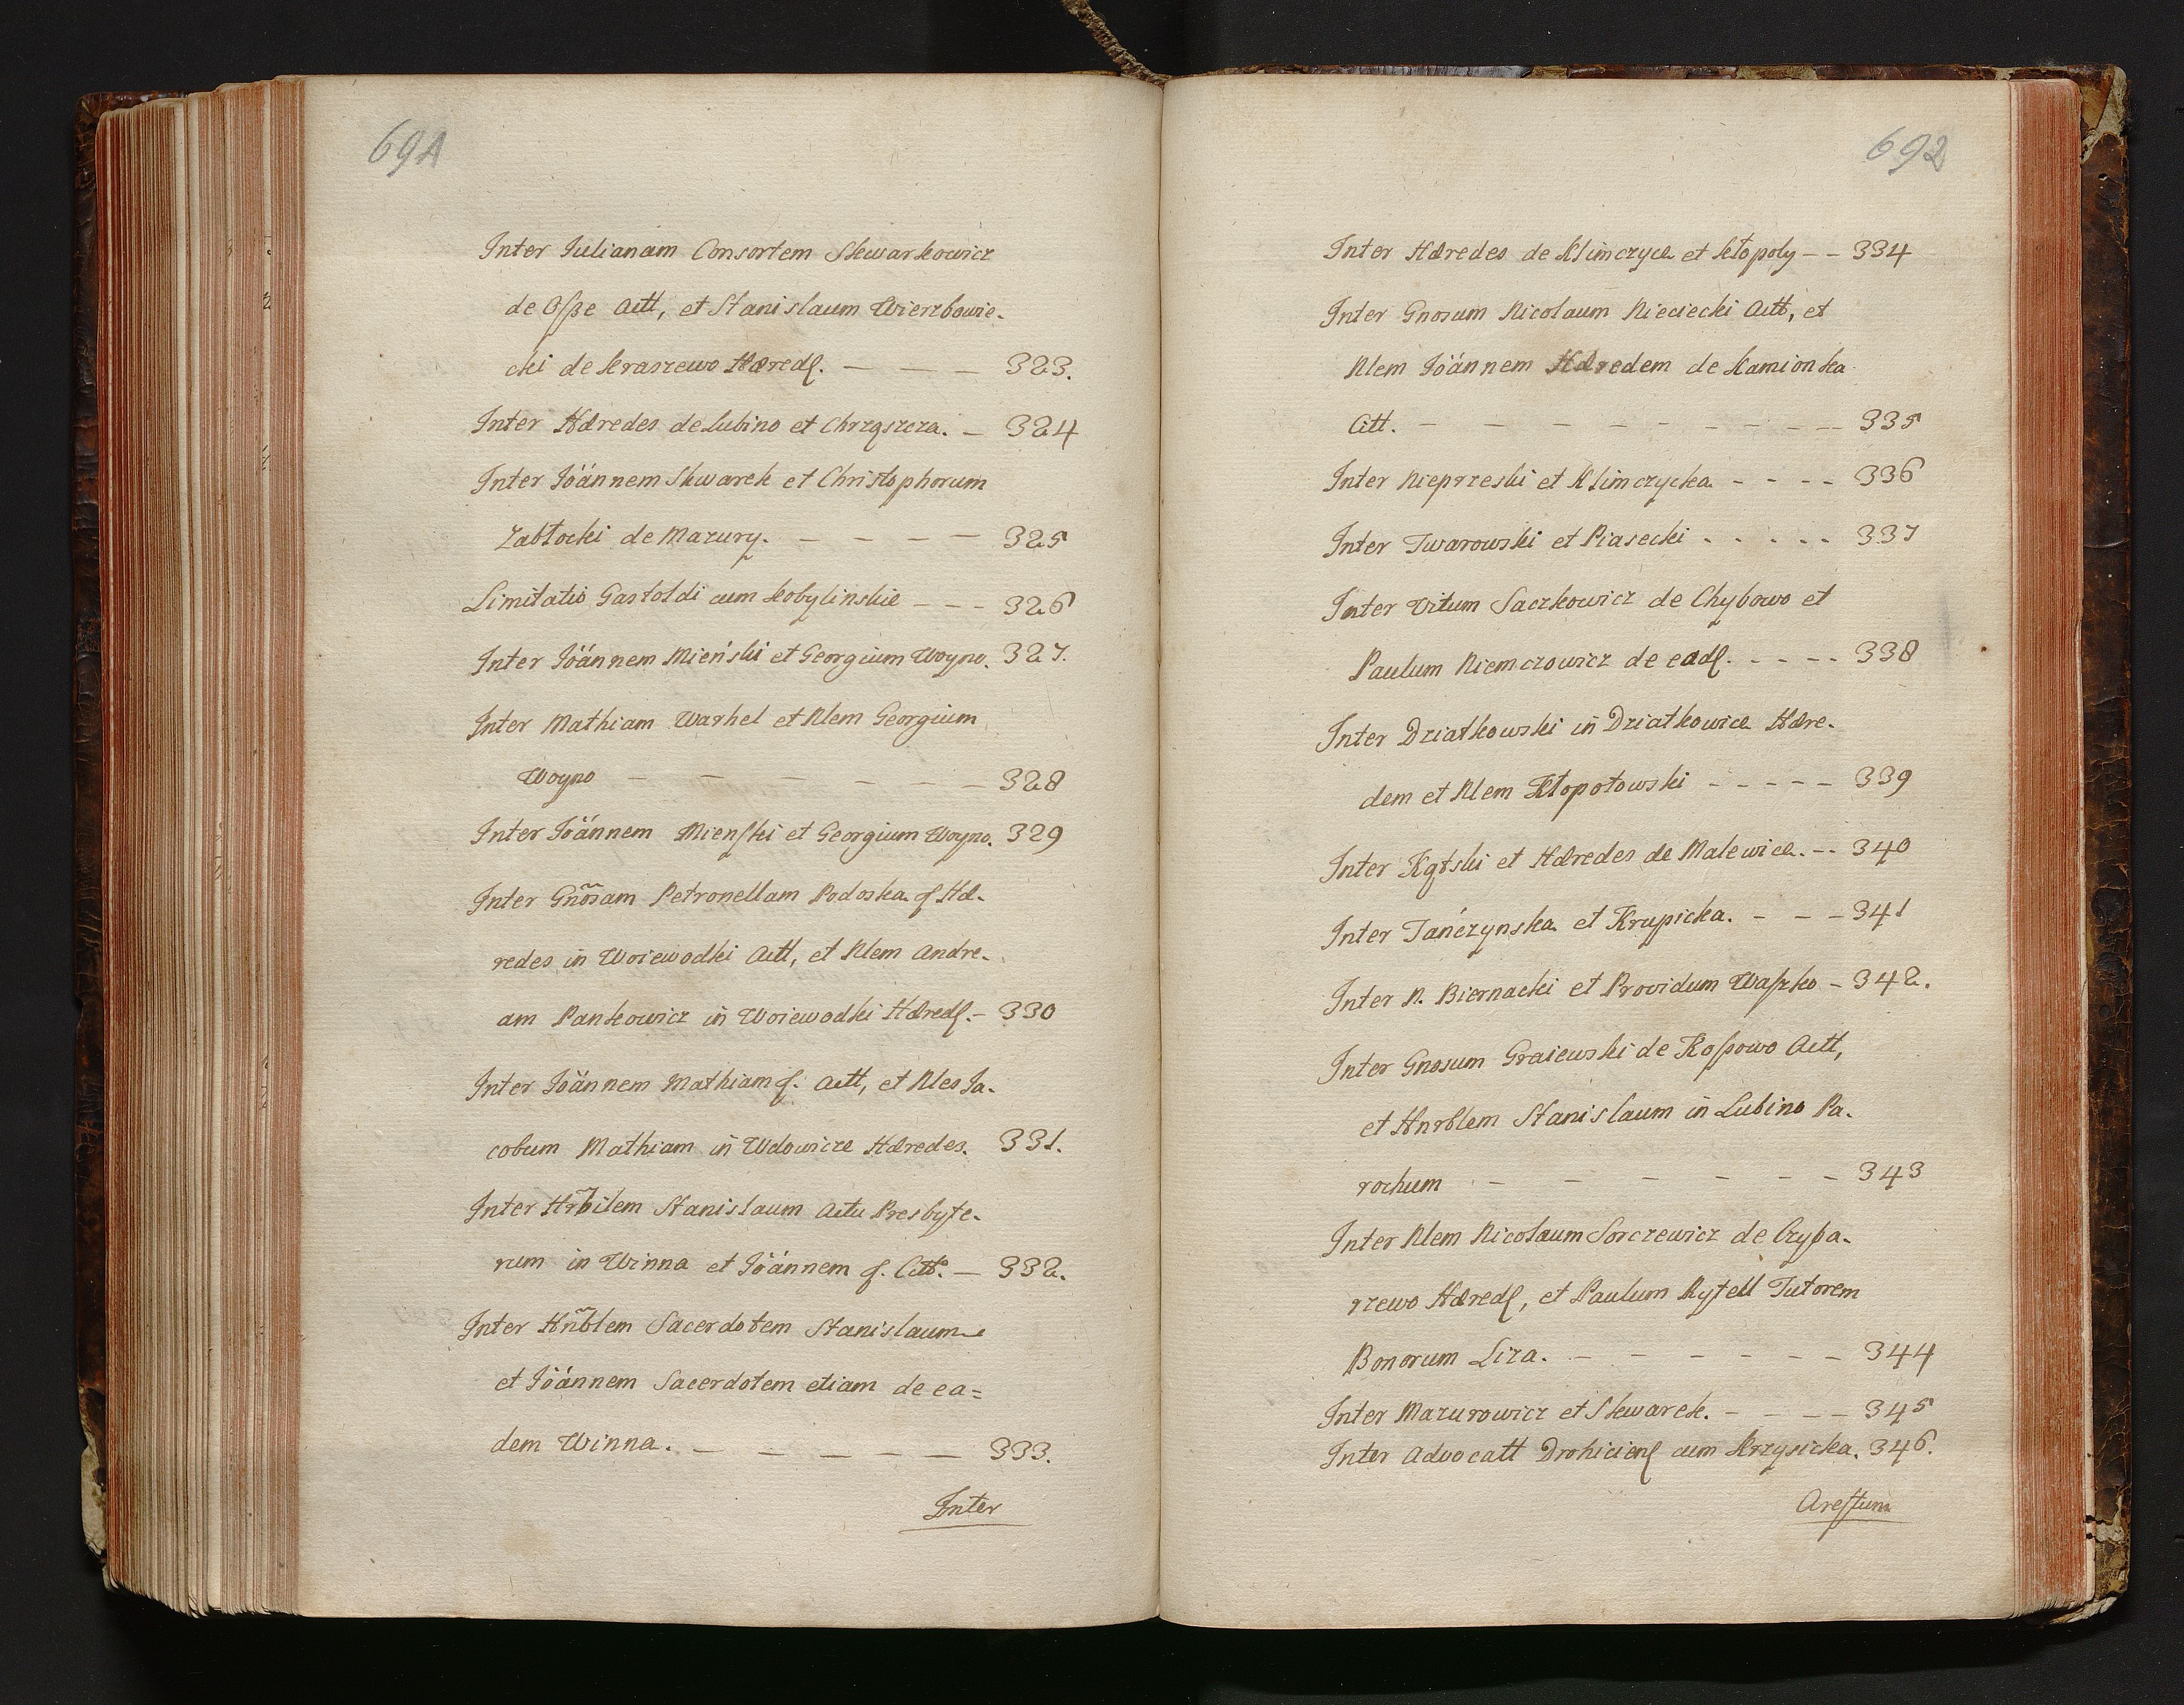 691
Inter Julianam Consortem Skwarkowicz
de Osße Actt, et Stanislaum Wierzbowie-
cki de Kraszewo Hæredꝭ. — — — 323.
Inter Hæredes de Lubino et Chrząszcza. — 324
Inter Jöánnem Skwarek et Christophorum
Zabłocki de Mazury. — — — — 325
Limitatio Gastoldi cum Kobylinskie - - - 326
Inter Jöánnem Mieński et Georgium Woyno. 327.
Inter Mathiam Warhel et Nlem Georgium
Woyno — — — — — — 328
Inter Jöánnem Mienſki et Georgium Woyno. 329
Inter Gño̅sam Petronellam Podoska ꝭ Hæ-
redes in Woiewodki Actt, et Nlem Andre-
am Pankowicz in Woiewodki Hæredꝭ. - 330
Inter Jöánnem Mathiam ꝭ. Actt, et Nles Ja-
cobum Mathiam in Wdowicze Hæredes. 331.
Inter Hr̃bilem Stanislaum Actu Presbyte-
rum in Winna et Jöánnem ꝭ. Citt. — 332.
Inter Hñblem Sacerdotem Stanislaum
et Jöánnem Sacerdotem etiam de ea=
dem Winna. — — — — — 333.
Inter
692
Inter Hæredes de Klimczyce et Kłopoły - - 334
Inter Gnosum Nicolaum Nieciecki Actt, et
Nlem Jöánnem Hæredem de Kamionka
Citt. - - - - - - - - - 335
Inter Nieprzeski et Klimczycka - - - - 336
Inter Twarowski et Piasecki . . . . . 337
Inter Vitum Saczkowicz de Chybowo et
Paulum Niemczowicz de eadꝭ. - - - - 338
Inter Dziatkowski in Dziatkowice Hære-
dem et Nlem Kłopotowski - - - - - 339
Inter Kątski et Hæredes de Malewice. - - 340
Inter Tańczynska et Krupicka. - - - 341
Inter N. Biernacki et Providum Waſzko - 342.
Inter Gnosum Graiewski de Koſsowo Actt,
et Hnrblem Stanislaum in Lubino Pa-
rochum - - - - - - 343
Inter Nlem Nicolaum Sorczewicz de Czyba-
rzewo Hæredꝭ, et Paulum Rytell Tutorem
Bonorum Liza. - - - - - - 344
Inter Mazurowicz et Skwarek. - - - - 345
Inter Advocatt Drohicienꝭ cum Krzysicka. 346.
Areſtum